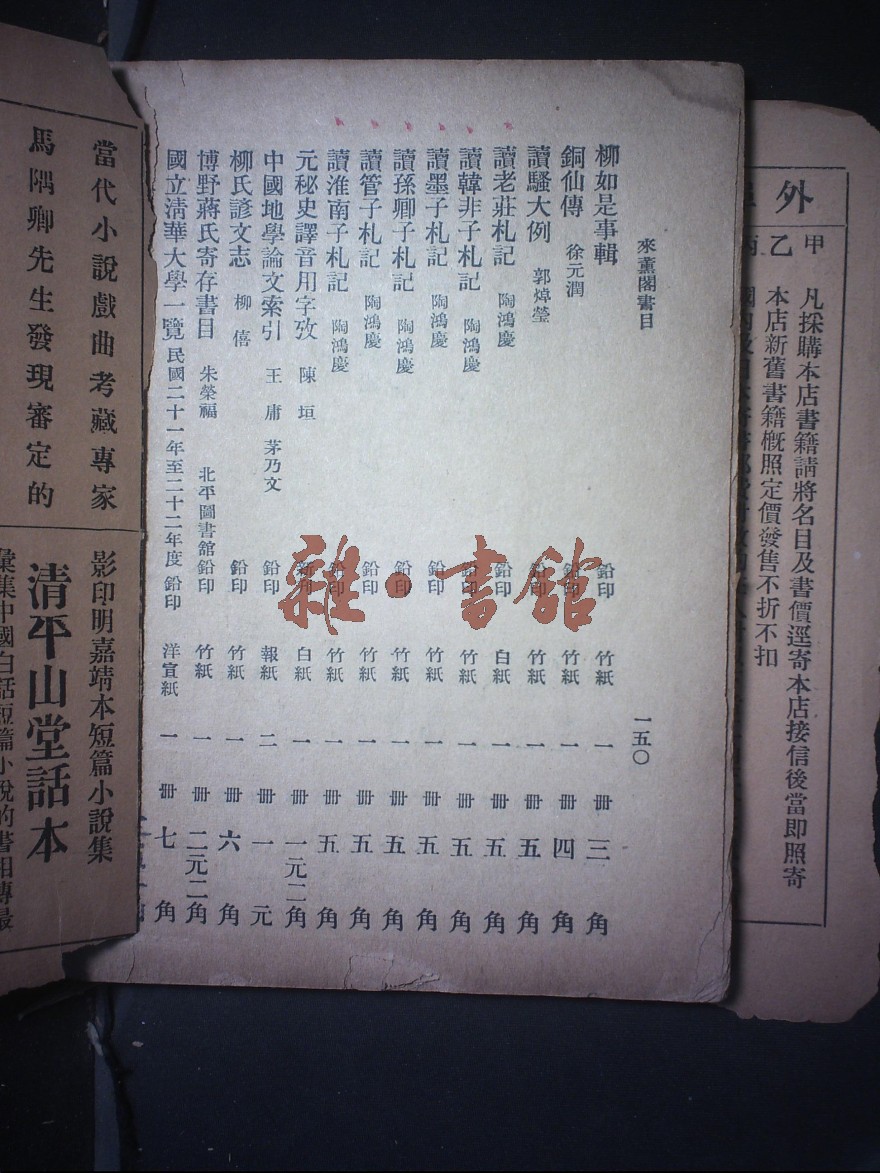 外
甲 凡採購本店書籍請將名目及書價逕寄本店接信後當即照寄
乙 本店新舊書籍概照定價發售不折不扣
來薰閣書目 一五〇
柳如是事輯 鉛印 竹紙 一冊 三角
銅仙傳 徐元潤 鉛印 竹紙 一冊 四角
讀騷大例 郭焯瑩 鉛印 竹紙 一冊 五角
讀老莊札記 陶鴻慶 鉛印 白紙 一冊 五角
讀韓非子札記 陶鴻慶 鉛印 竹紙 一冊 五角
讀墨子札記 陶鴻慶 鉛印 竹紙 一冊 五角
讀孫卿子札記 陶鴻慶 鉛印 竹紙 一冊 五角
讀管子札記 陶鴻慶 鉛印 竹紙 一冊 五角
讀淮南子札記 陶鴻慶 鉛印 竹紙 一冊 五角
元秘史譯音用字攷 陳垣 印 白紙 一冊 一元二角
中國地學論文索引 王庸 茅乃文 鉛印 報紙 二冊 一元
柳氏諺文志 柳僖 鉛印 竹紙 一冊 六角
博野蔣氏寄存書目 朱榮福 北平圖書館鉛印 竹紙 一冊 二元二角
國立清華大學一覽 民國二十一年至二十二年度 鉛印 洋宣紙 一冊 七角
雜·書館
當代小說戲曲考藏專家
馬隅卿先生發現審定的
影印明嘉靖本短篇小說集
清平山堂話本
彙集中國白話短篇小說的書